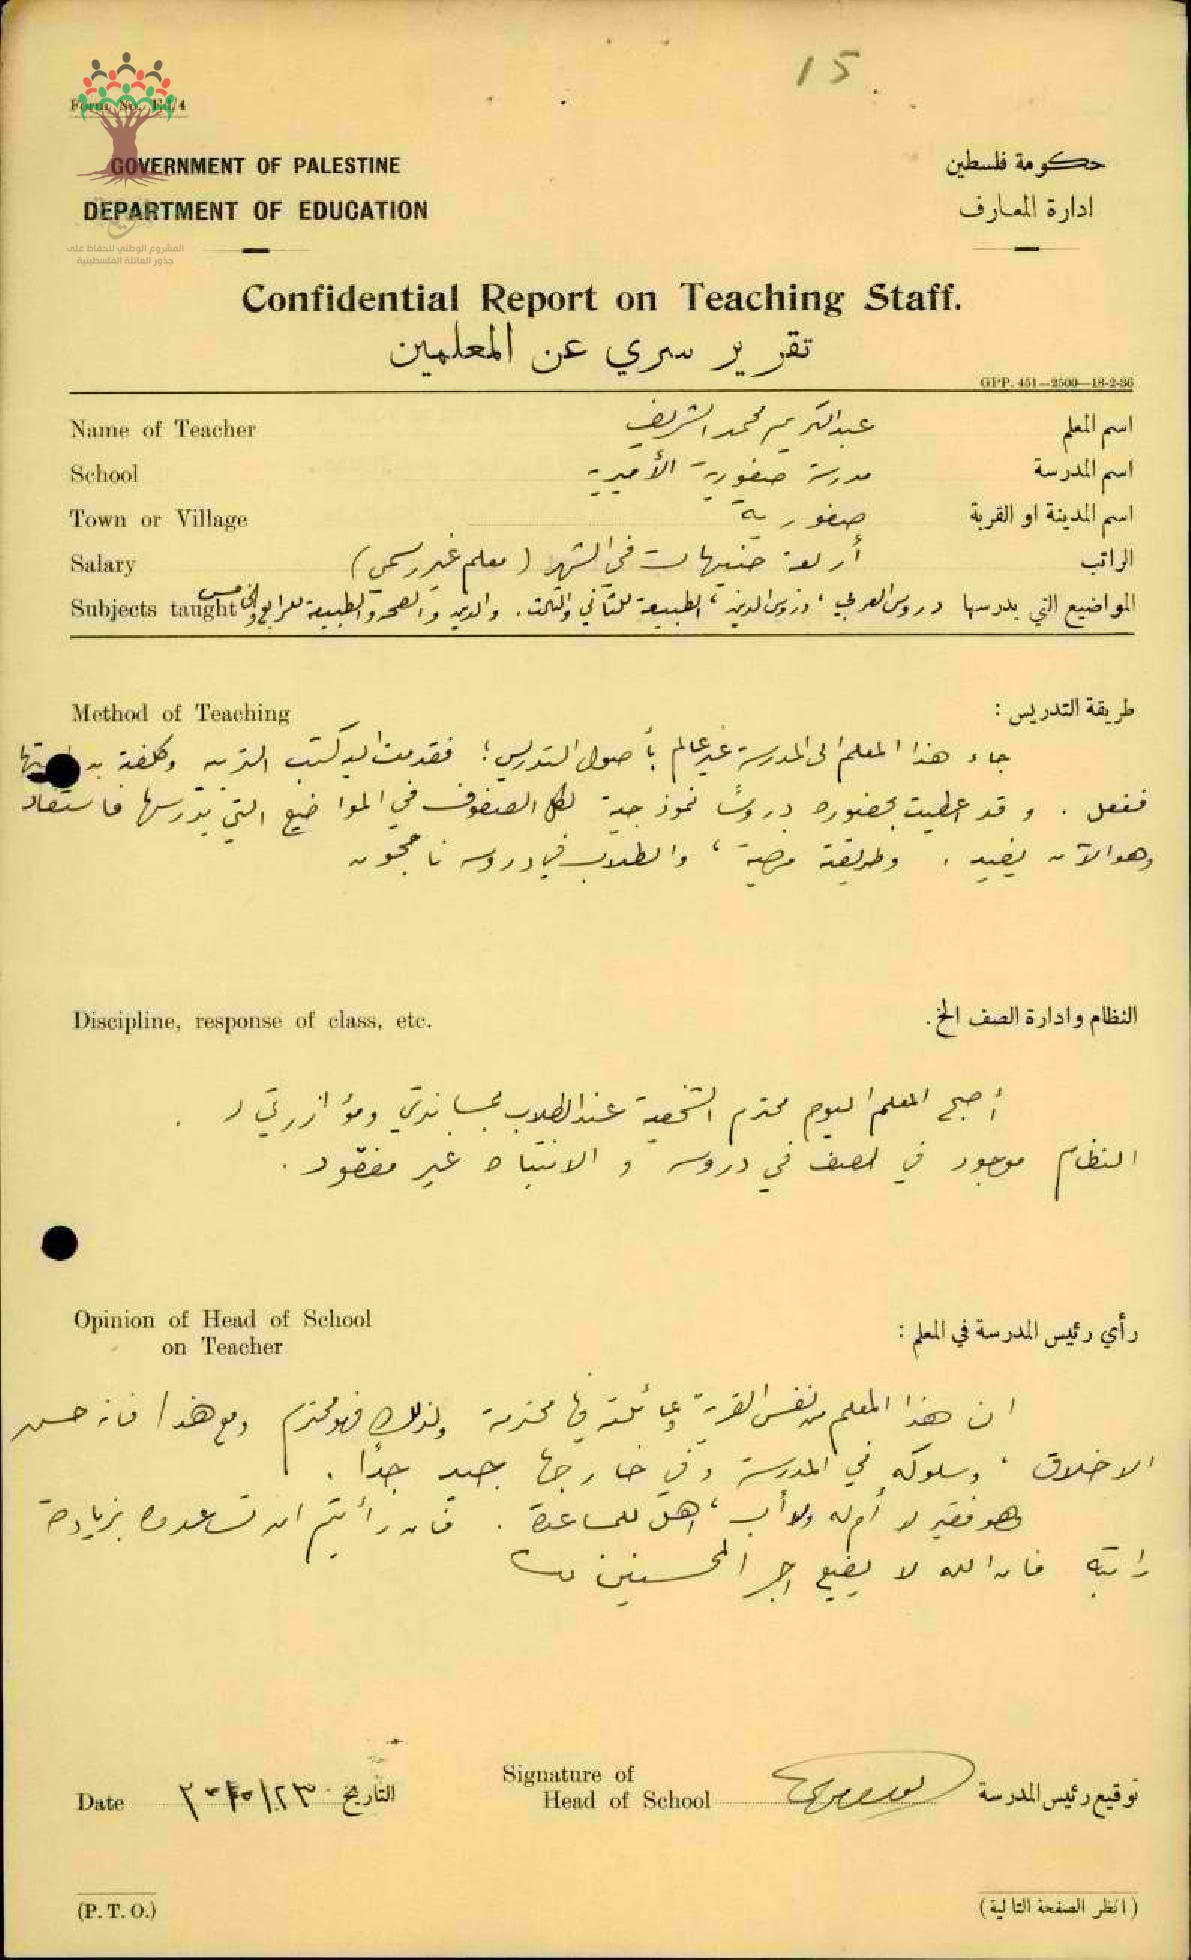 15
Form No. Ed/4
GOVERNMENT OF PALESTINE
حكومة فلسطين
DEPARTMENT OF EDUCATION
ادارة المعارف
المشروع الوطني للحفاظ على
جذور العائلة الفلسطينية
Confidential Report on Teaching Staff.
تقرير سري عن المعلمين
GPP. 451—2500—18-2-36
Name of Teacher عبدالكريم محمد الشريف اسم المعلم
School مدرسة صفورية الأميرية اسم المدرسة
Town or Village صفورية اسم المدينة او القرية
Salary أربعة جنيهات في الشهر (معلم غير رسمي) الراتب
Subjects taught المواضيع التي يدرسها دروس العربي، دروس الدين، الطبيعة للثاني والثالث. والدين والصحة والطبيعة للرابع والخامس
Method of Teaching طريقة التدريس :
جاء هذا المعلم الى المدرسة غير عالم بأصول التدريس؛ فقدمت اليه كتب التربية وكلفته
ففعل. وقد اعطيت بحضوره دروسًا نموذجية لكل الصفوف في المواضيع التي يدرسها فاستفاد
وهو الآن يفيد. وطريقته مرضية، والطلاب في دروسه ناجحون
Discipline, response of class, etc. النظام وادارة الصف الخ.
أصبح المعلم اليوم محترم الشخصية عند الطلاب بمساندتي ومؤازرتي له.
النظام موجود في الصف في دروسه والانتباه غير مفقود.
Opinion of Head of School
on Teacher
رأي رئيس المدرسة في المعلم :
ان هذا المعلم من نفس القرية وعائلته فيها محترمة ولذلك فهو محترم ومع هذا فانه حسن
الاخلاق، وسلوكه في المدرسة وفي خارجها جيد جدًا.
وهو فقير لا أم له ولا أب، أهل للمساعدة. فان رأيتم ان تساعدوه بزيادة
راتبه فان الله لا يضيع اجر المحسنين
Date التاريخ
Signature of
Head of School توقيع رئيس المدرسة
(P. T. O.) (انظر الصفحة التالية)